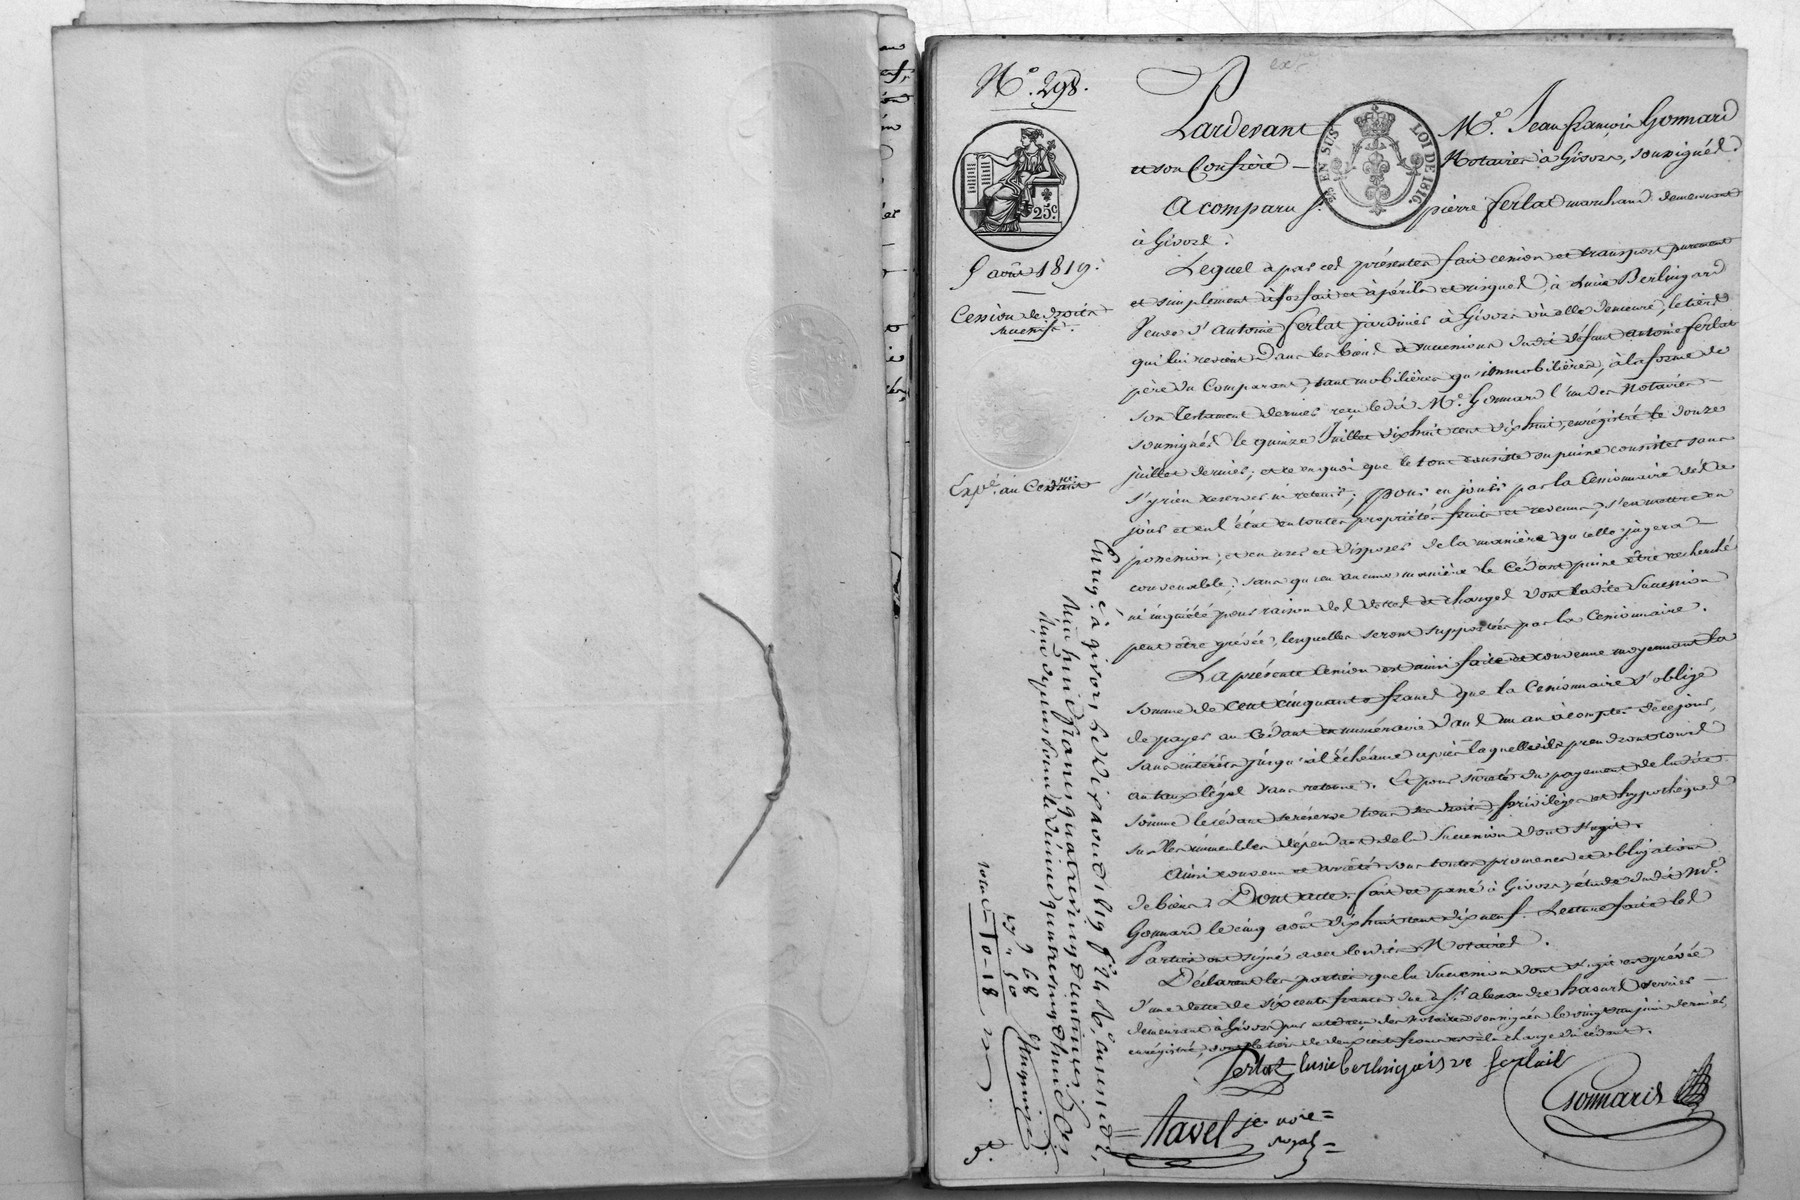 N.° 298.
25.c
5 août 1819.
Cession de droits
success.fs
Expé. au Cédant
Pardevant M.e Jean françois Gonnard
et son Confrère Notaires à Givors, soussignés.
25 EN SUS LOI DE 1816.
A comparu S.r pierre ferlat marchand demeurant
à Givors.
Lequel a par ces présentes fait cession et transport purement
et simplement à forfait et à périls et risques, à Lucie Berlingard
Veuve d'Antoine ferlat jardinier à Givors où elle demeure, le tiers
qui lui revient dans les biens et succession dudit défunt antoine ferlat
père du Comparant, tant mobilières qu'immobilières, à la forme de
son Testament dernier reçu ledit M.e Gonnard l'un des Notaires
soussignés le quinze Juillet dix huit cent dix huit, enregistré le douze
juillet dernier; et en quoi que le tout consiste ou puisse consister sans
s'y rien réserver ni retenir; Pour en jouir par la Cessionnaire dès ce
jour et en l'état en toutes propriétés fruits et revenus, s'en mettre en
possession, et en user et disposer de la manière qu'elle jugera
convenable; sans qu'en aucune manière le Cédant puisse être recherché
ni inquiété pour raison des dettes et charges dont ladite Succession
peut être grévée, lesquelles seront supportées par la Cessionnaire.
La présente Cession est ainsi faite et convenue moyennant la
somme de cent cinquante francs que la Cessionnaire s'oblige
de payer au Cédant en numéraire dans un an à compter de ce jour,
sans intérêts jusqu'à l'échéance après laquelle ils prendront cours
au taux légal sans retenue. Et pour sureté du payement de ladite
somme le cédant se réserve tous ses droits, privilèges et hypothèques
sur les immeubles dépendant de la Succession dont s'agit.
Ainsi convenu et arrêté sous toutes promesses et obligations
de biens. Dont acte, fait et passé à Givors, étude dudit M.e
Gonnard le cinq août dix huit cent dix neuf. Lecture faite les
Parties ont signé avec lesdits Notaires.
Déclarent les parties que la Succession dont s'agit est grévée
d'une dette de six cents francs due à S.r alexandre
demeurant à Givors par acte reçu des Notaires soussignés le vingt un juin dernier,
enregistré, dont le tiers de deux cent francs est à la charge du cédant.
ferlat lusie berlingard ve ferlat
Gonnard
Navel je note
royal
Enreg.é à givors le dix aout 1819 f.° 24 R.°
huit francs quatrevingt centimes